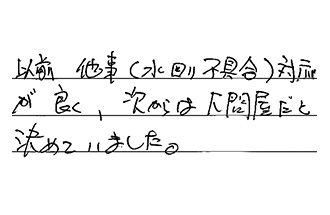 以前 他事(水回り不具合)対応
が良く、次からは下問屋だと
決めていました。